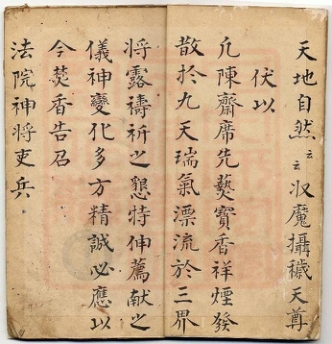 天地自然云云収魔攝穢天尊
伏以
凢陳齋席先爇寶香祥煙發
散於九天瑞氣漂流於三界
将露禱祈之懇特伸薦献之
儀神變化多方精誠必應以
今焚香告召
法院神将吏兵